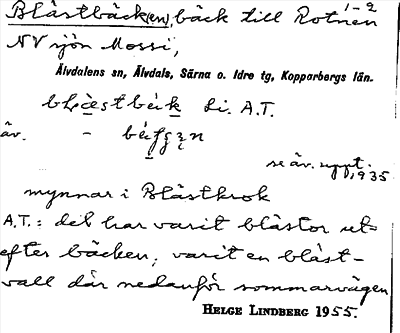 Blästbäck(en), bäck till Rotnen 1-2
NV sjön Mossi,
Älvdalens sn, Älvdals, Särna o. Idre tg, Kopparbergs län.
Li. A.T.
äv. -
se äv. uppt. 1935
mynnar i Blästkrok
A.T.: det har varit blästor ut-
efter bäcken; varit en bläst-
vall där nedanför sommarvägen
HELGE LINDBERG 1955.